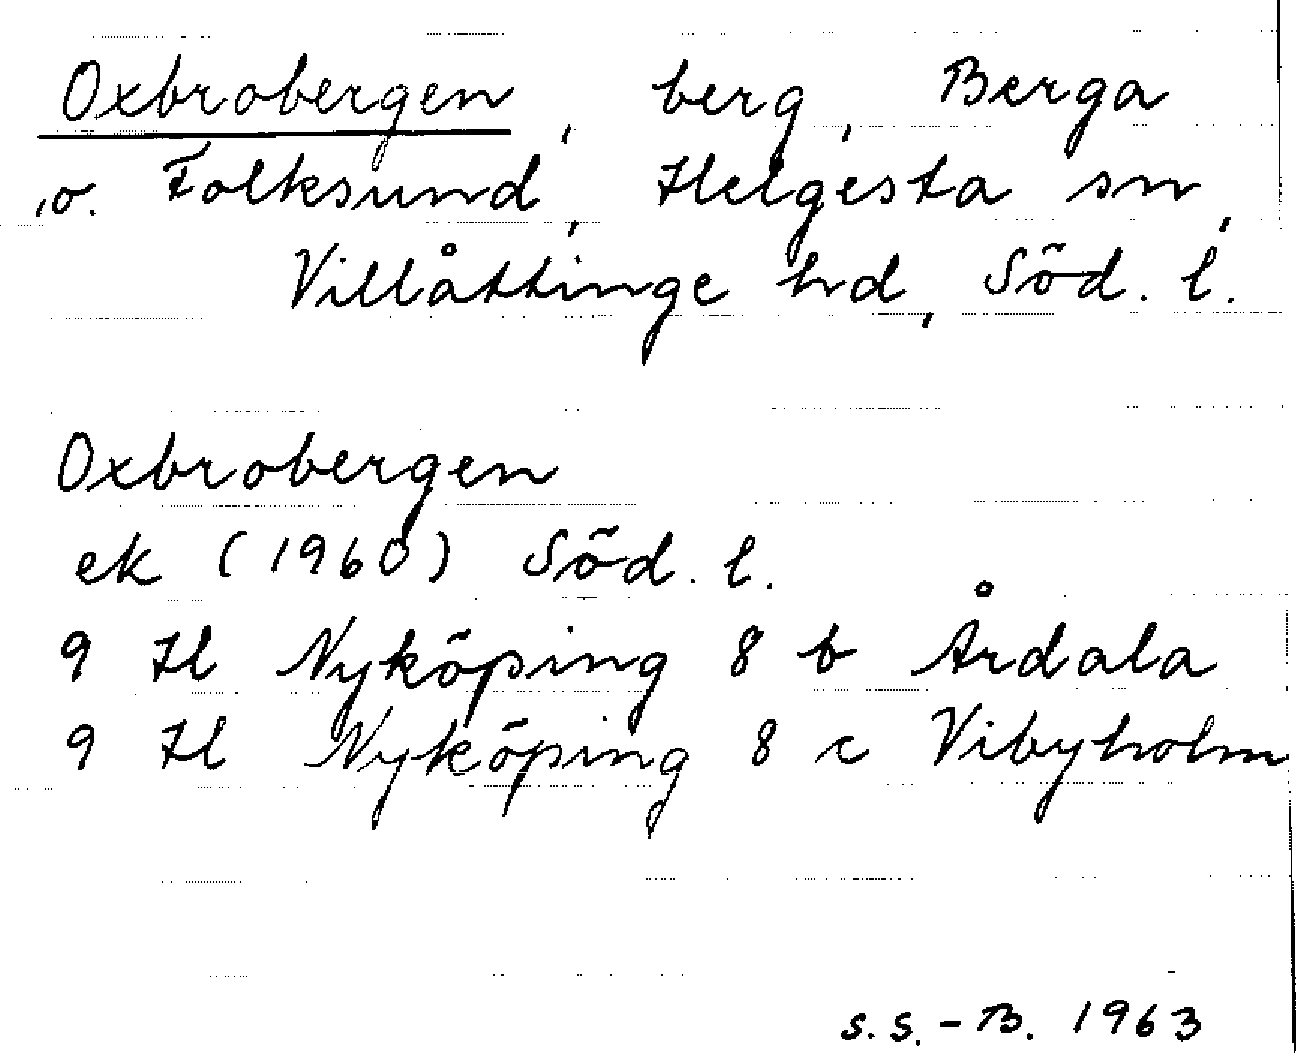 Oxbrobergen, berg, Berga
o. Folksund, Helgesta sn,
Villåttinge hd, Söd. l.
Oxbrobergen
ek (1960) Söd. l.
9 H Nyköping 8 b Årdala
9 H Nyköping 8 c Vibyholm
S.S.-B. 1963